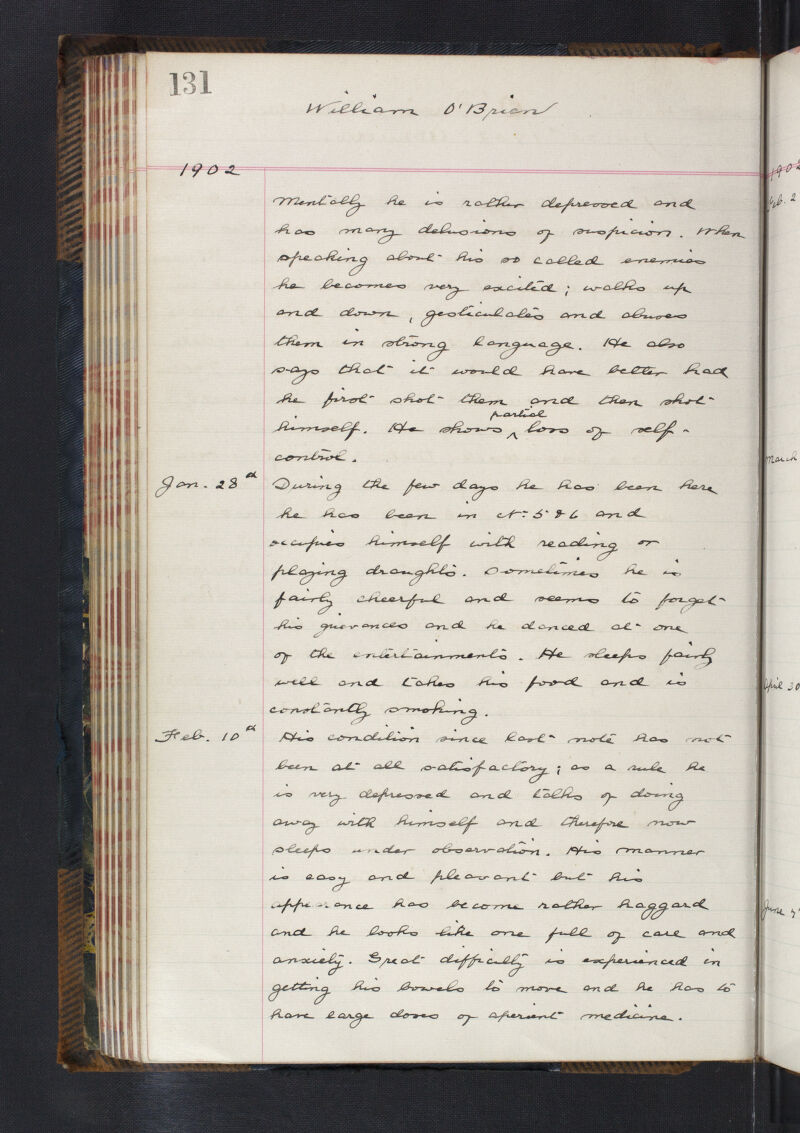 131
William O'Brien
1902
Mentally he is rather depressed and
has many delusions of suspicion. When
speaking about his so called enemies
he becomes very excited; walks up
and down, gesticulates and abuses
them in strong language. He also
says that it would have better had
he first shot them and then shot
partial
himself. He shows ^ loss of self-
control.
Jan. 28th During the few days he has been here
he has been in No. 5 & 6 and
occupies himself with reading or
playing draughts. Sometimes he is
fairly cheerful and seems to forget
his grievances and he danced at one
of the entertainments. He sleeps fairly
well and takes his food and is
constantly smoking.
Feb. 10th His condition since last note has not
been at all satisfactory; as a rule he
is very depressed and talks of doing
away with himself and therefore now
sleeps under observation. His manner
is easy and pleasant but his
appearance has become rather haggard
and he looks like one full of care and
anxiety. Great difficulty is experienced in
getting his bowels to move and he has to
have large doses of aperient medicine.
1902
Feb. 2
March
April 30
June